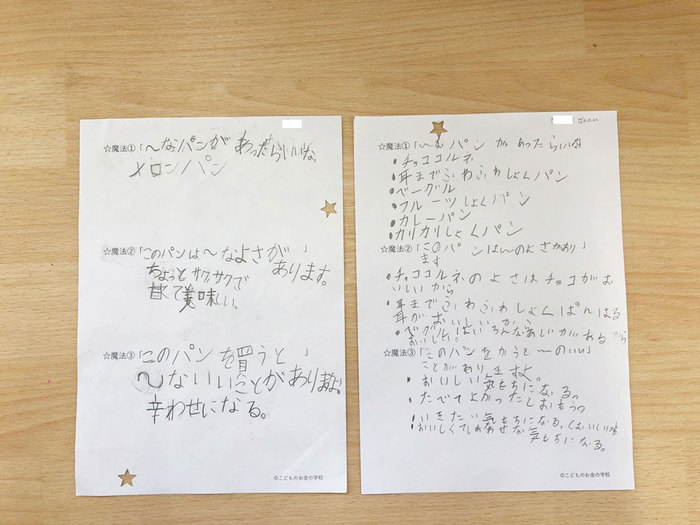 ☆魔法①「〜なパンがあったらいいな
メロンパン
☆魔法②「このパンは〜なよさが」
あります。
ちょっとサクサクで
甘くて美味しい。
☆魔法③「このパンを買うと」
〜ないいことがありますよ。
幸わせになる。
©こどものお金の学校
☆魔法①「〜なパンがあったらいいな
・チョココルネ
・耳までふわふわしょくパン
・ベーグル
・フルーツしょくパン
・カレーパン
・カリカリしょくパン
☆魔法②「このパンは〜のよさがあり」
ます
・チョココルネのよさはチョコがお
いしいから
・耳までふわふわしょくぱんは
耳がおいしいから
・ベーグルはいろんなあじがあるから
おいしい。
☆魔法③「このパンをかうと〜のいい」
ことがありますよ。
・おいしい気もちになる。
・たべてよかったとおもう。
・いきたい気もちになる。
・おいしくてしあわせな気もちになる。
©こどものお金の学校